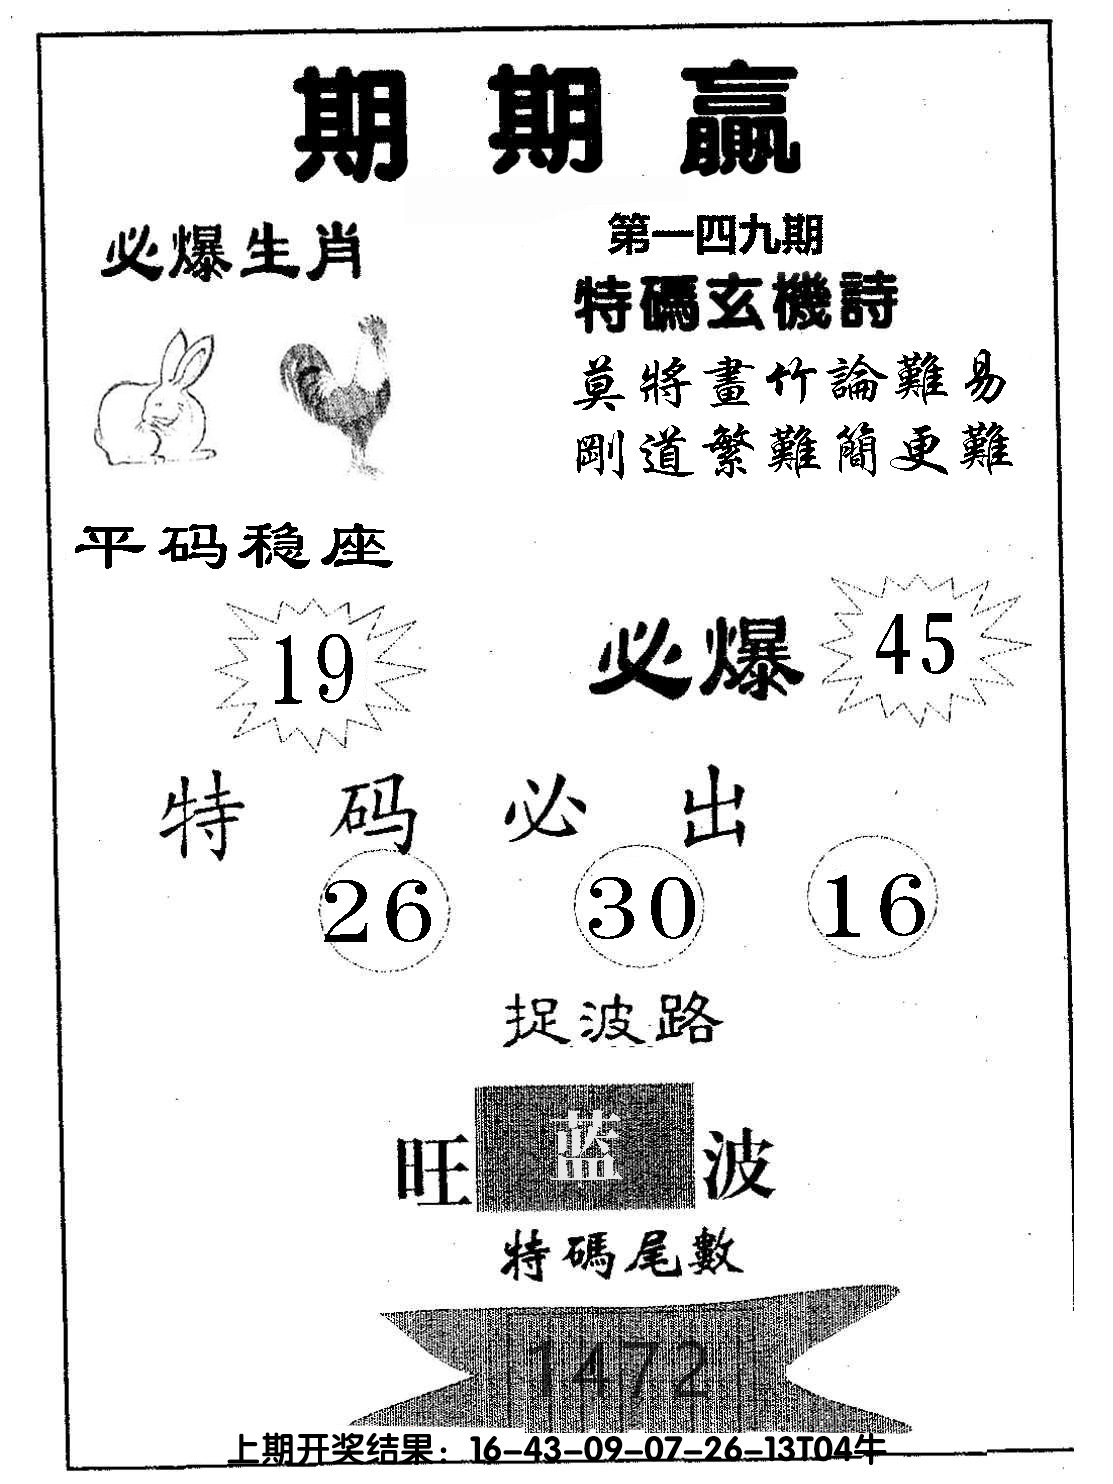 期期赢
必爆生肖
第一四九期
特碼玄機詩
莫將畫竹論難易
剛道繁難簡更難
平码稳座
19
必爆
45
特码必出
26 30 16
捉波路
旺蓝波
特碼尾數
1472
上期开奖结果：16-43-09-07-26-13T04牛